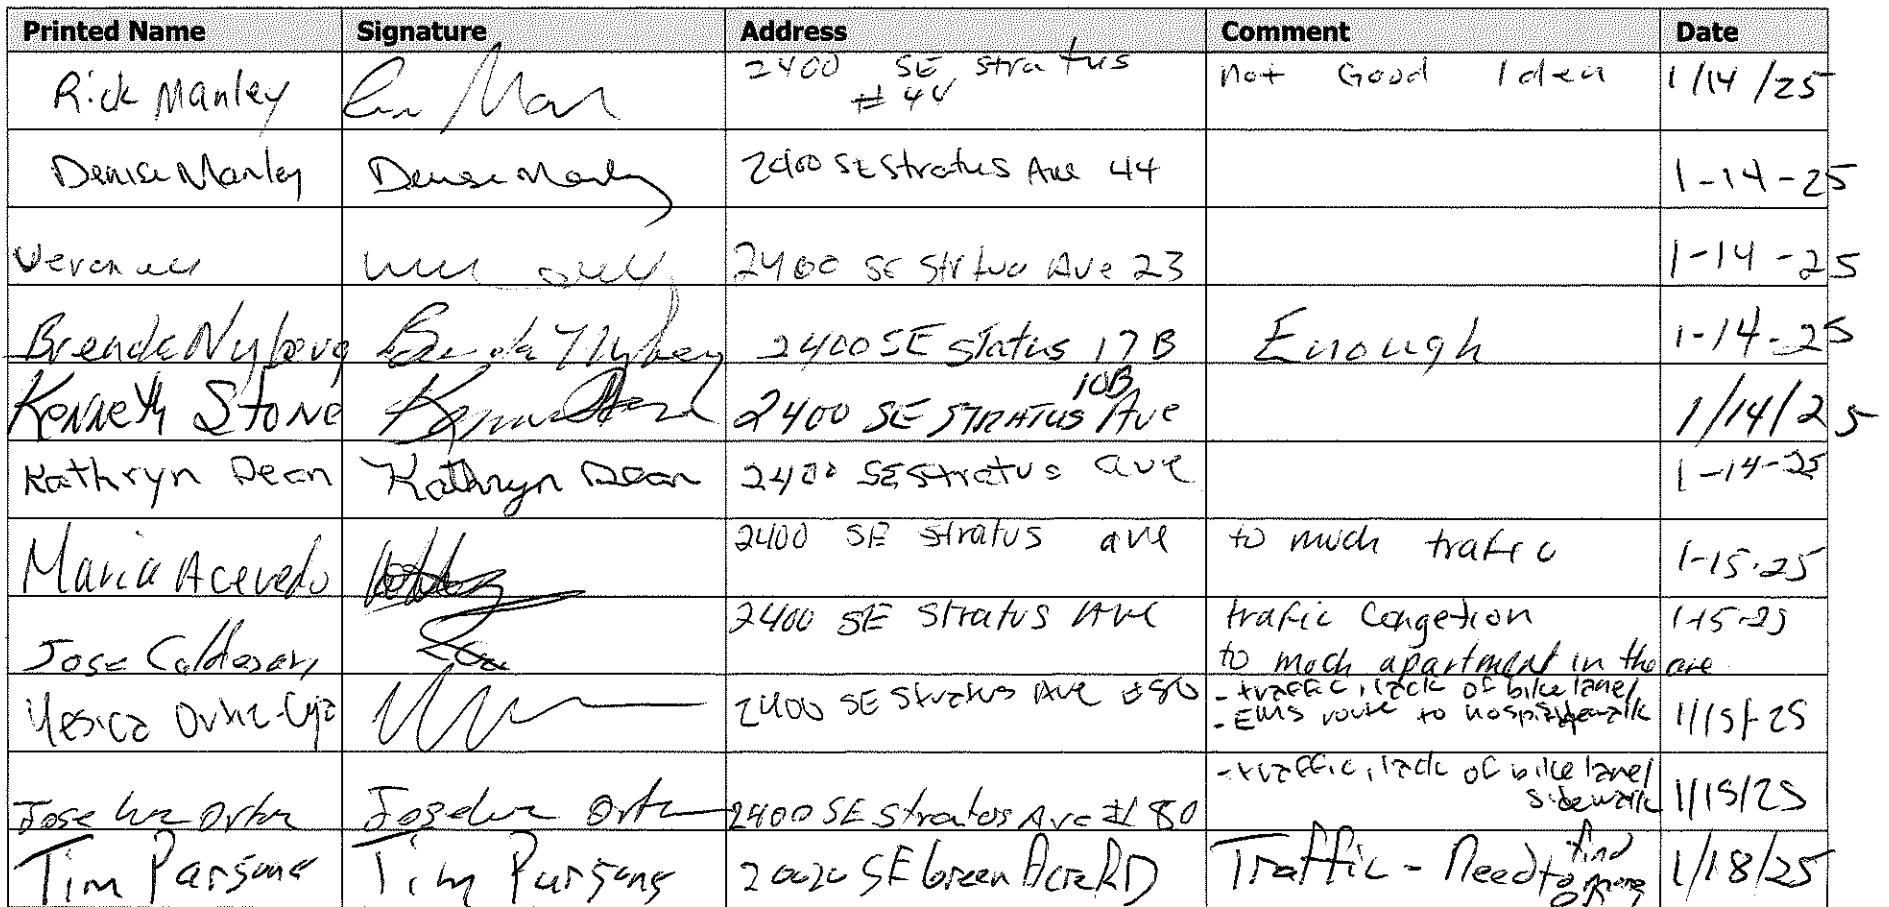 Printed Name Signature Address Comment Date
Rick Manley 2400 SE Stratus #44 not Good Idea 1/14/25
Denise Manley Denise Manley 2400 SE Stratus Ave 44 1-14-25
2400 SE Ave 23 1-14-25
Brenda Nyberg Brenda Nyberg 2400 SE Status 17B Enough 1-14-25
Kenneth Stone 2400 SE STRATUS Ave 10B 1/14/25
Kathryn Dean Kathryn Dean 2400 SE Stratus ave 1-14-25
Maria Acevedo 2400 SE stratus ave to much trafic 1-15-25
Jose 2400 SE Stratus Ave trafic Congetion 1-15-25
to much apartment in the are
Yesica 2400 SE Stratus Ave #80 - traffic, lack of bike lane/ sidewalk 1/15/25
- EMS route to hospi
Jose 2400 SE Stratus Ave #80 - traffic, lack of bike lane/ 1/15/25
sidewalk
Tim Parsons Tim Parsons SE Green Acre RD Traffic - Need to find 1/18/25